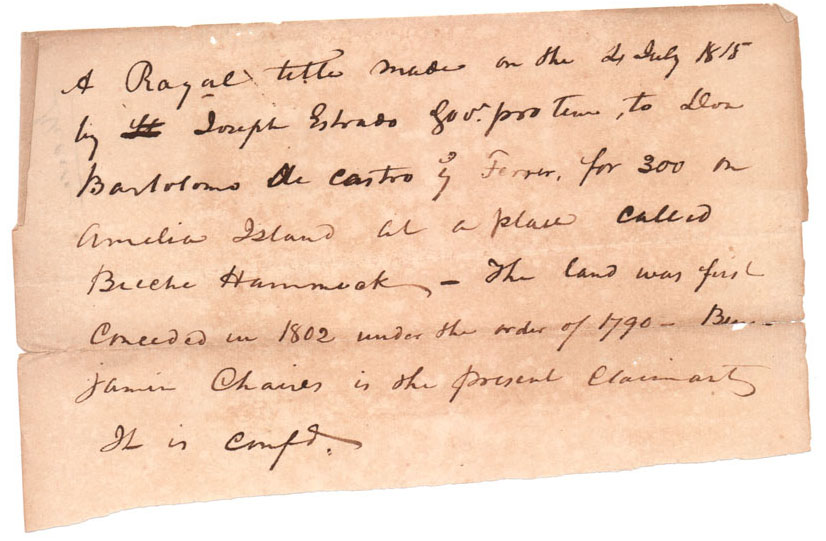 A Royal title made on the 4 July 1815
by Joseph Estrado Govr. pro tem, to Don
Bartolomo de Castro y Ferrer, for 300 on
Amelia Island at a place called
Beeche Hammock — The land was first
Conceded in 1802 under the order of 1790 — Ben-
jamin Chaires is the present Claimant
It is confd.